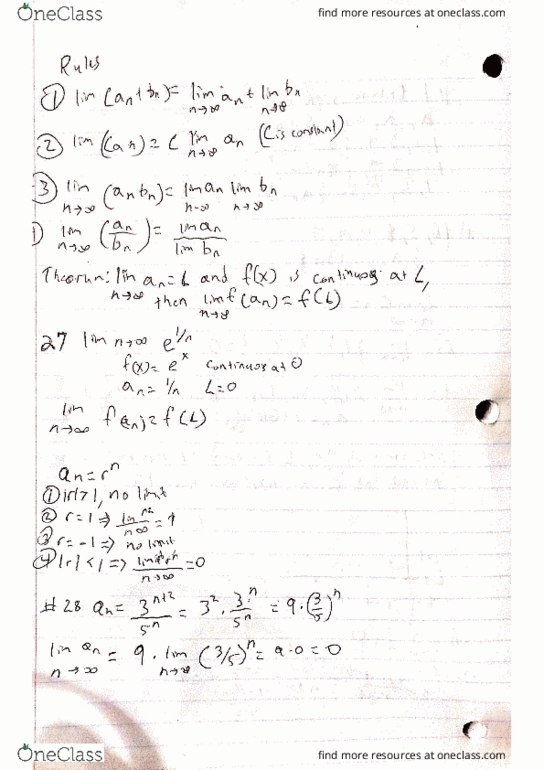 OneClass
find more resources at oneclass.com
Rules
① lim (an+bn)= lim an+ lim bn
n→∞ n→∞
② lim (Can)= C lim an (C is constant)
n→∞
③ lim (an bn)= lim an lim bn
n→∞ n→∞ n→∞
lim (an/bn)= lim an / lim bn
n→∞
Theorun: lim an=L and f(x) is continuos at L,
n→∞ then lim f(an)=f(L)
n→∞
27 lim n→∞ e^1/n
f(x)= e^x continuos at 0
an= 1/n L=0
lim f(an)=f(L)
n→∞
an=r^n
① |r|>1, no limit
② r=1 => lim =1
n→∞
③ r=-1=> no limit
④ |r|<1 => =0
n→∞
#28 an= 3^n+2 / 5^n = 3^2 · 3^n / 5^n = 9·(3/5)^n
lim an = 9· lim (3/5)^n = 9·0=0
n→∞ n→∞
OneClass
find more resources at oneclass.com